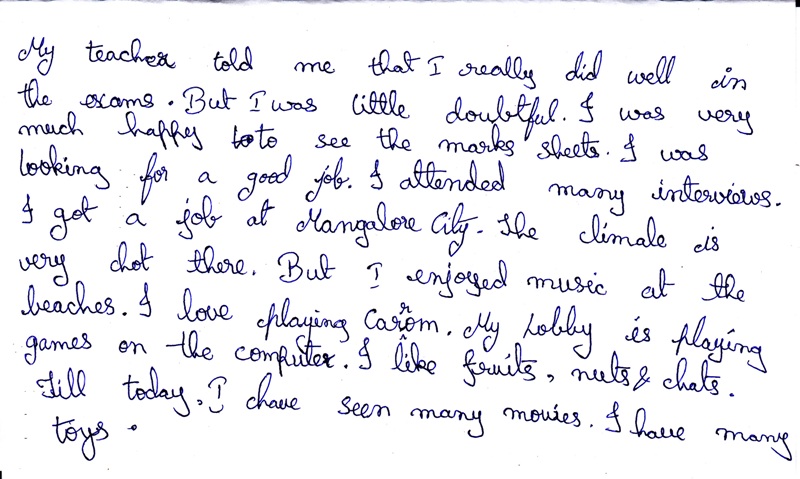 My teacher told me that I really did well in
the exams. But I was little doubtful. I was very
much happy to see the marks sheets. I was
looking for a good job. I attended many interviews.
I got a job at Mangalore City. The climate is
very hot there. But I enjoyed music at the
beaches. I love playing Carrom. My hobby is playing
games on the computer. I like fruits, nuts & chats.
Till today, I have seen many movies. I have many
toys.